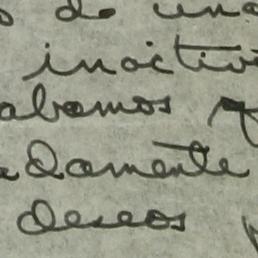 de una
inactivi
abamos
damente
deseos